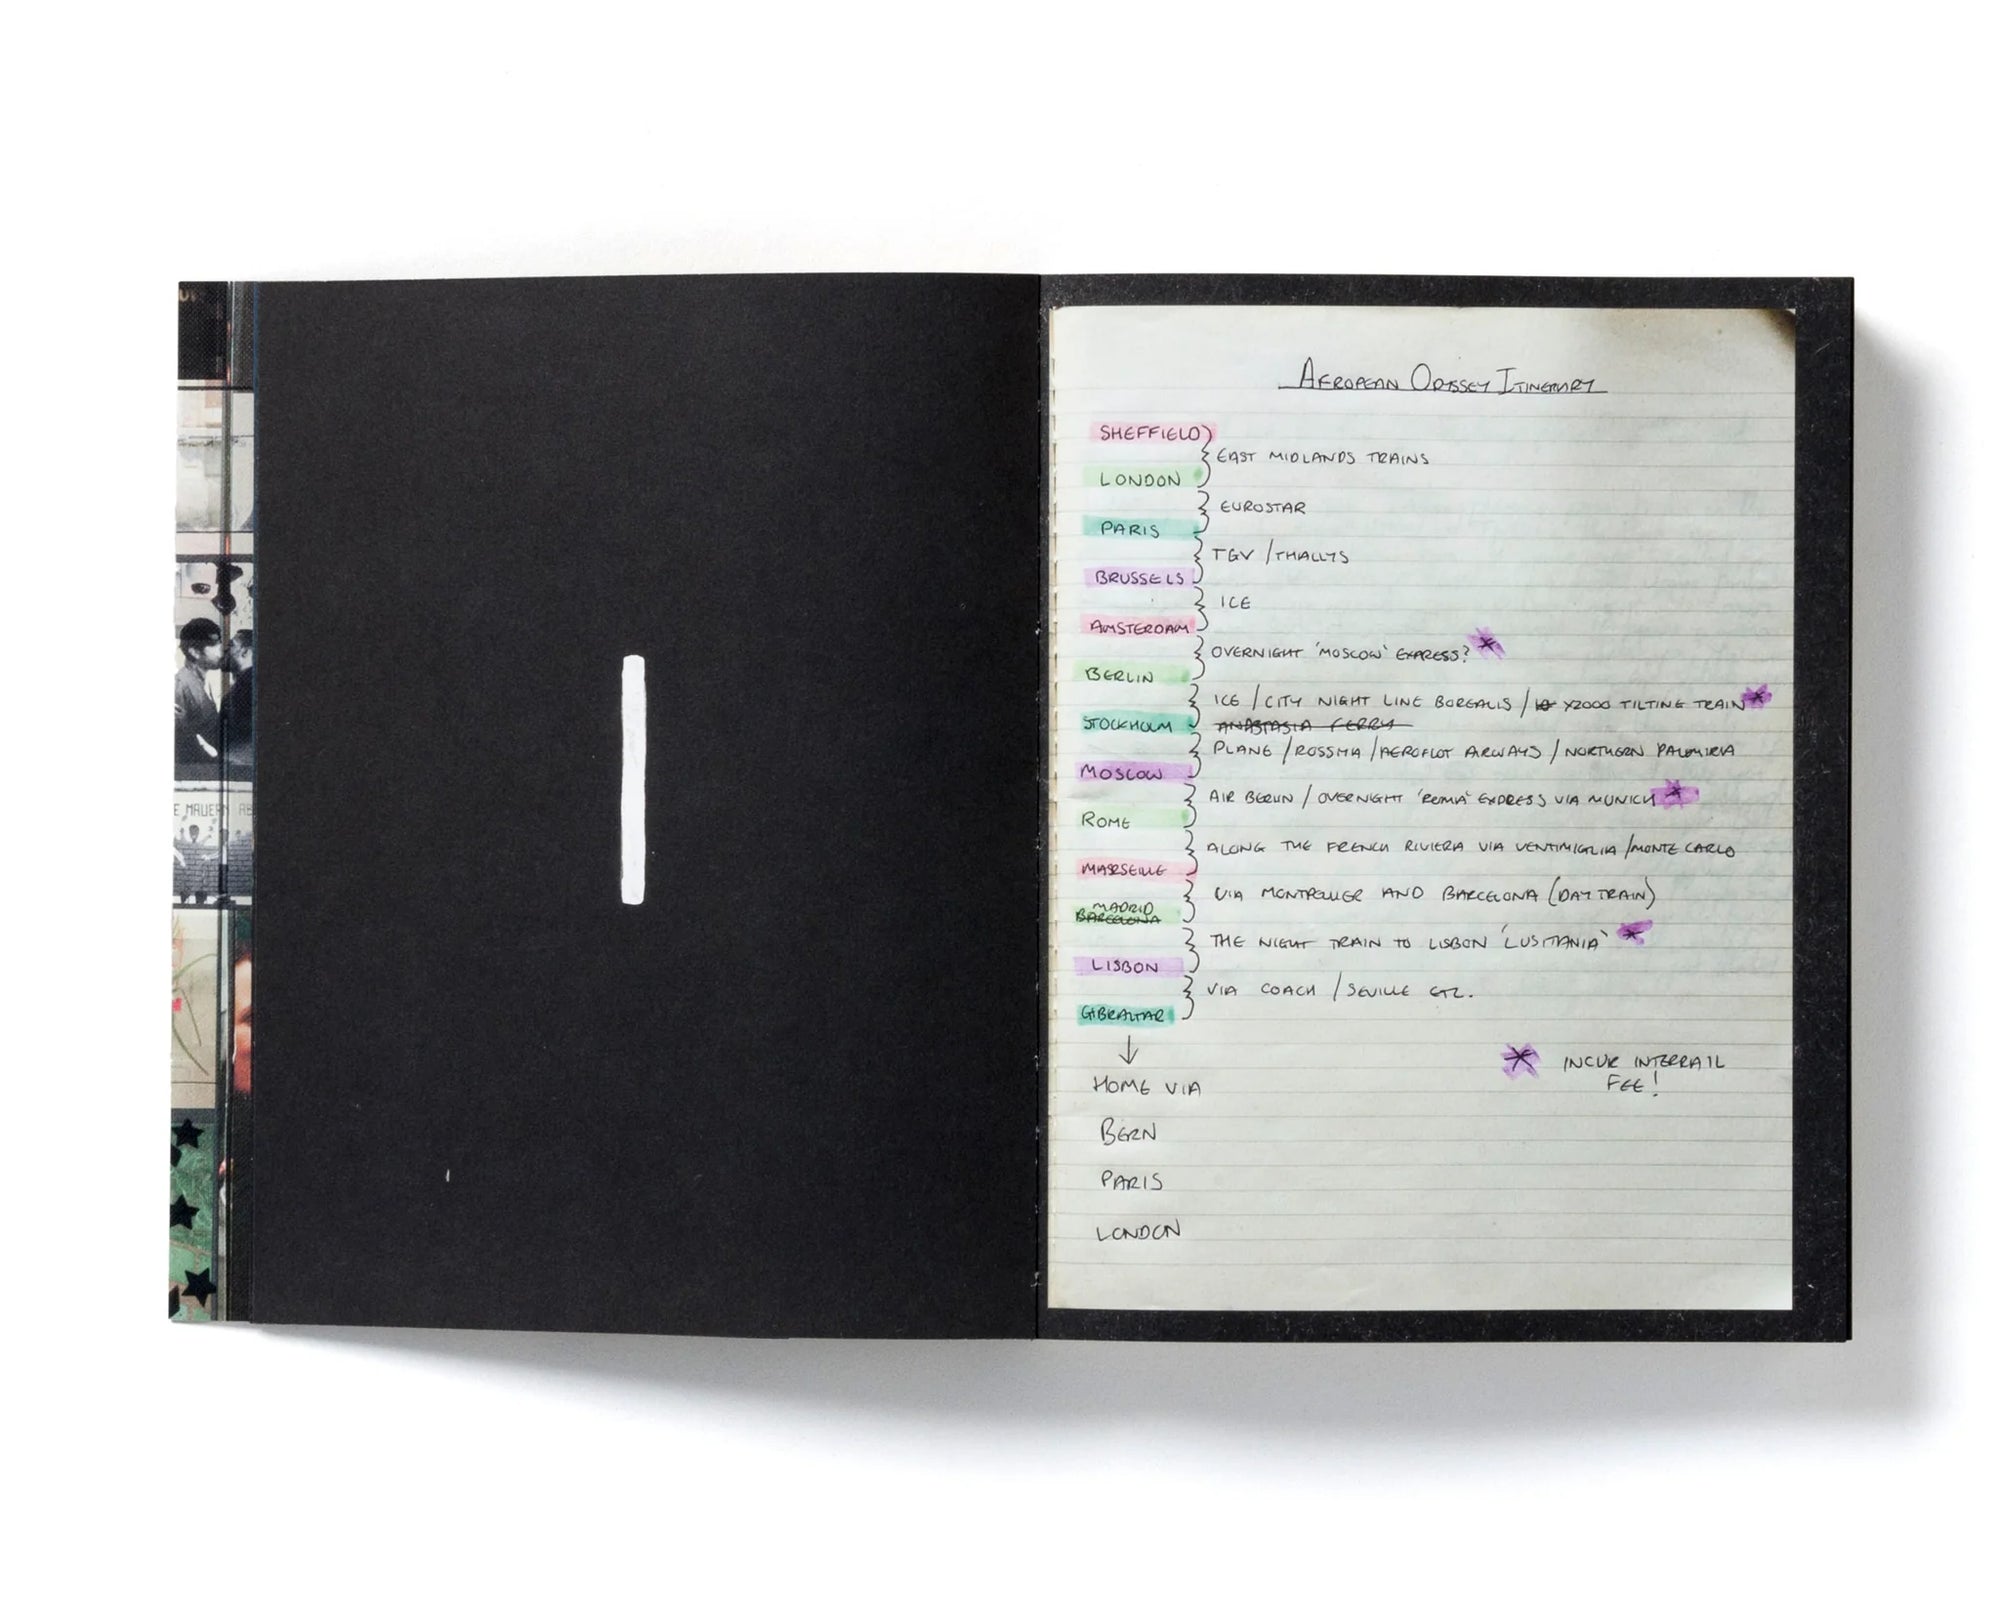 E MAUER AB
AFROPEAN ODYSSEY ITINERARY
SHEFFIELD
EAST MIDLANDS TRAINS
LONDON
EUROSTAR
PARIS
TGV / THALLYS
BRUSSELS
ICE
AMSTERDAM
OVERNIGHT 'MOSCOW' EXPRESS? *
BERLIN
ICE / CITY NIGHT LINE BOREALIS / X2000 TILTING TRAIN *
STOCKHOLM
ANASTASIA FERRY
PLANE / ROSSIYA / AEROFLOT AIRWAYS / NORTHERN PALMIRIA
MOSCOW
AIR BERLIN / OVERNIGHT 'ROMA' EXPRESS VIA MUNICH *
ROME
ALONG THE FRENCH RIVIERA VIA VENTIMIGLIA / MONTE CARLO
MARSEILLE
VIA MONTPELLIER AND BARCELONA (DAY TRAIN)
MADRID
BARCELONA
THE NIGHT TRAIN TO LISBON 'LUSITANIA' *
LISBON
VIA COACH / SEVILLE ETC.
GIBRALTAR
↓
HOME VIA
* INCUR INTERRAIL
FEE!
BERN
PARIS
LONDON